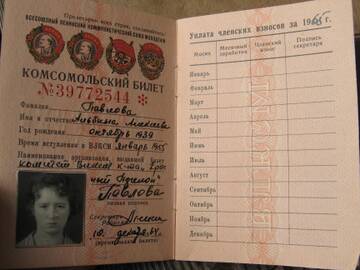 Пролетарии всех стран, соединяйтесь!
ВСЕСОЮЗНЫЙ ЛЕНИНСКИЙ КОММУНИСТИЧЕСКИЙ СОЮЗ МОЛОДЕЖИ
КОМСОМОЛЬСКИЙ БИЛЕТ
№ 39772544
Фамилия Павлова
Имя и отчество Альбина
Год рождения октябрь 1939
Время вступления в ВЛКСМ январь 1955
Наименование организации, выдавшей билет
комитет
Павлова
личная подпись
Секретарь
10 декабр. 64 г.
(время выдачи билета)
Уплата членских взносов за 1965 г.
Месяц
Месячный заработок
Членский взнос
Подпись секретаря
Январь
Февраль
Март
Апрель
Май
Июнь
Июль
Август
Сентябрь
Октябрь
Ноябрь
Декабрь